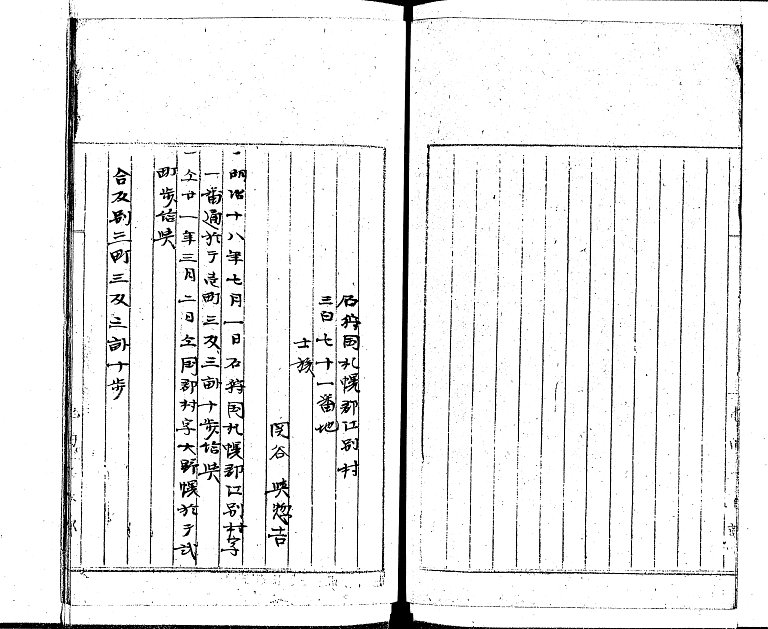 石狩国札幌郡江別村
三百七十一番地
士族
関谷 與惣吉
一明治十八年七月一日石狩国札幌郡江別村字
一番通於テ壱町三反三畝十歩給與
一仝廿一年三月二日仝国郡村字大野幌於テ弐
町歩給與
合反別三町三反三畝十歩